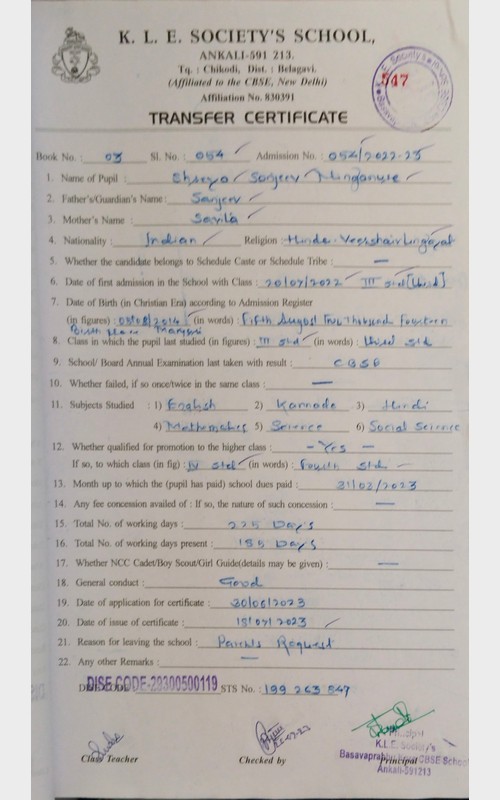 K. L. E. SOCIETY'S SCHOOL,
ANKALI-591 213.
Tq. : Chikodi, Dist. : Belagavi.
(Affiliated to the CBSE, New Delhi)
Affiliation No. 830391
547
TRANSFER CERTIFICATE
Book No. : 03 Sl. No. : 054 Admission No. : 054/2022-23
1. Name of Pupil : Shreya Sanjeev
2. Father's/Guardian's Name : Sanjeev
3. Mother's Name : Savita
4. Nationality : Indian Religion : Hindu.
5. Whether the candidate belongs to Schedule Caste or Schedule Tribe : —
6. Date of first admission in the School with Class : 20/07/2022 III std [third]
7. Date of Birth (in Christian Era) according to Admission Register
(in figures) : 05/08/2014 (in words) : Fifth August Two Thousand Fourteen
Birth Place
8. Class in which the pupil last studied (in figures) : III std (in words) : third std
9. School/ Board Annual Examination last taken with result : CBSE
10. Whether failed, if so once/twice in the same class : —
11. Subjects Studied : 1) English 2) Kannada 3) Hindi
4) Mathematics 5) Science 6) Social Science
12. Whether qualified for promotion to the higher class : - Yes -
If so, to which class (in fig) : IV std (in words) : Fourth std -
13. Month up to which the (pupil has paid) school dues paid : 31/03/2023
14. Any fee concession availed of : If so, the nature of such concession : —
15. Total No. of working days : 225 Days
16. Total No. of working days present : 185 Days
17. Whether NCC Cadet/Boy Scout/Girl Guide(details may be given) : —
18. General conduct : Good
19. Date of application for certificate : 30/06/2023
20. Date of issue of certificate : 15/07/2023
21. Reason for leaving the school : Parents Request
22. Any other Remarks : —
DISE CODE-29300500119 STS No. : 199 263 547
Class Teacher Checked by Principal
Principal
K.L.E. Society's
CBSE School
Ankali-591213